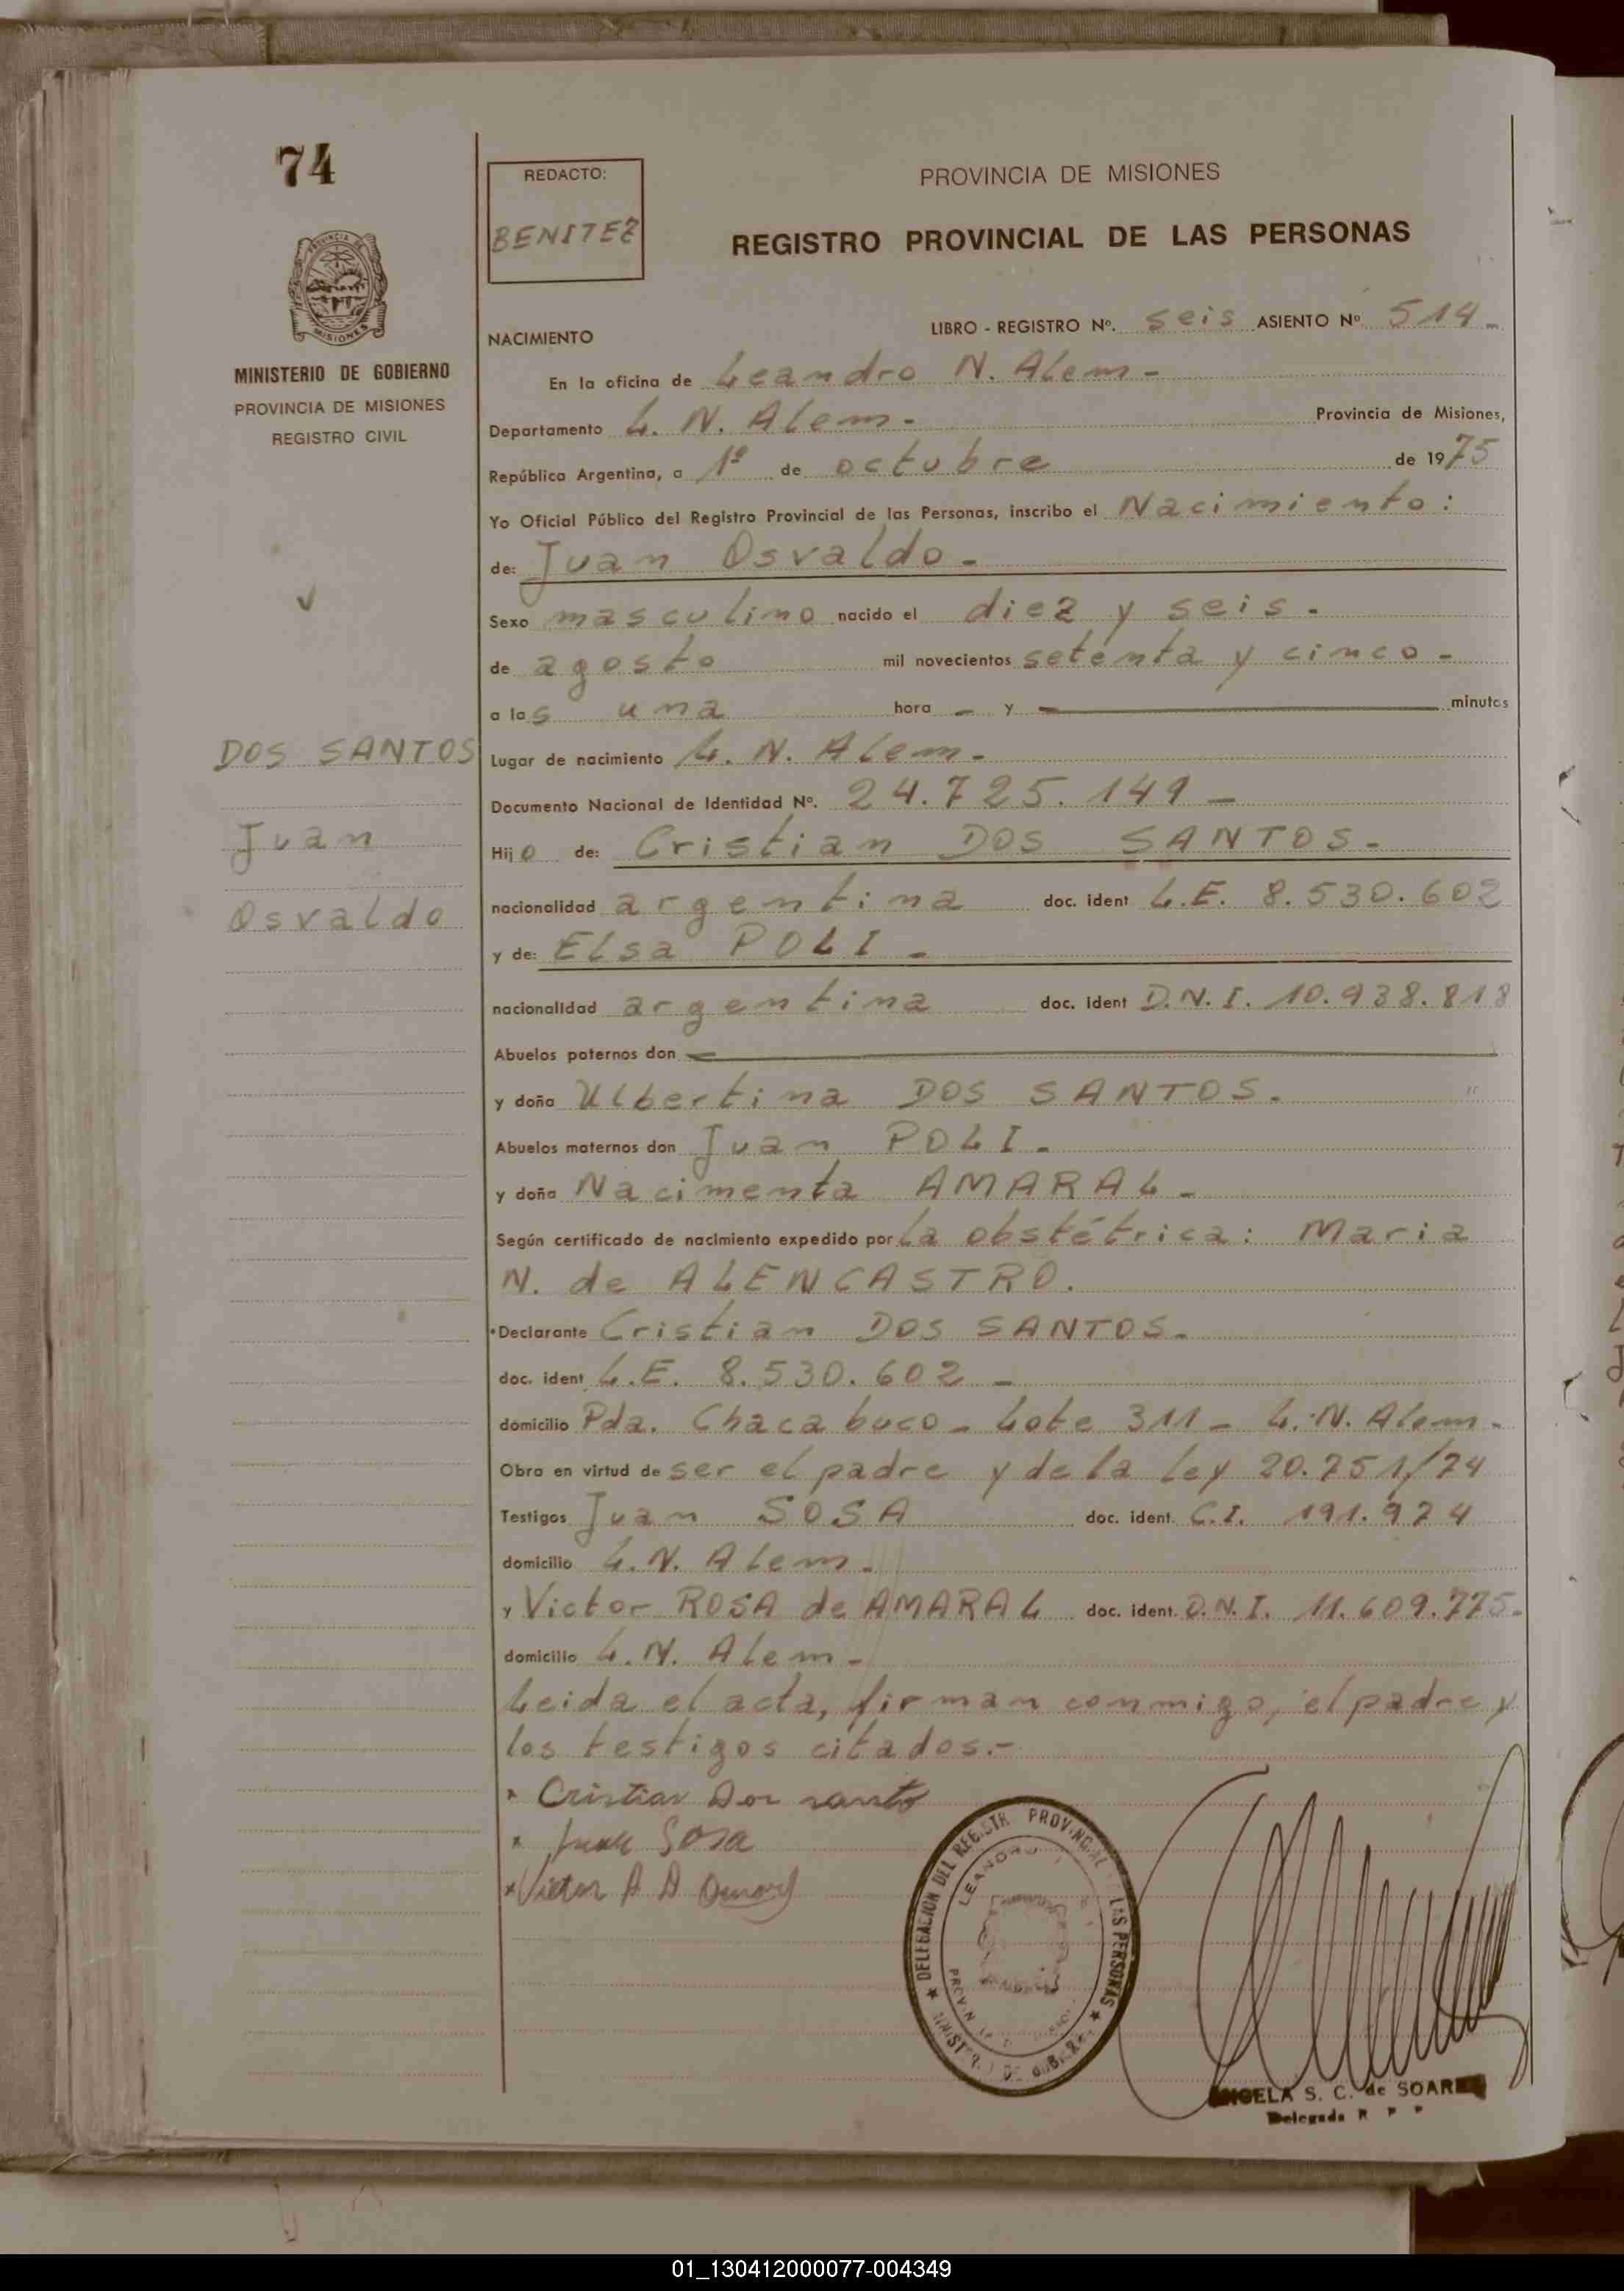 74
REDACTO:
BENITEZ
PROVINCIA DE MISIONES
REGISTRO PROVINCIAL DE LAS PERSONAS
MISIONES
MINISTERIO DE GOBIERNO
PROVINCIA DE MISIONES
REGISTRO CIVIL
NACIMIENTO
LIBRO - REGISTRO Nº. seis ASIENTO Nº 514-
En la oficina de Leandro N. Alem-
Departamento L. N. Alem- Provincia de Misiones,
República Argentina, a 1º de octubre de 1975
Yo Oficial Público del Registro Provincial de las Personas, inscribo el Nacimiento:
de: Juan Osvaldo-
Sexo masculino nacido el diez y seis-
de agosto mil novecientos setenta y cinco-
a las una hora - y - minutos
DOS SANTOS
Juan
Osvaldo
Lugar de nacimiento L. N. Alem-
Documento Nacional de Identidad Nº. 24.725.149-
Hijo de: Cristian DOS SANTOS-
nacionalidad argentina doc. ident L.E. 8.530.602
y de: Elsa POLI-
nacionalidad argentina doc. ident D.N.I. 10.938.818
Abuelos paternos don -
y doña Ulbertina DOS SANTOS.
Abuelos maternos don Juan POLI-
y doña Nacimenta AMARAL-
Según certificado de nacimiento expedido por la obstétrica: Maria
N. de ALENCASTRO.
Declarante Cristian DOS SANTOS-
doc. ident L.E. 8.530.602-
domicilio Pda. Chacabuco- Lote 311- L.N. Alem-
Obra en virtud de ser el padre y de la Ley 20.751/74
Testigos Juan SOSA doc. ident. C.I. 191.974
domicilio L.N. Alem-
y Victor ROSA de AMARAL doc. ident. D.N.I. 11.609.775-
domicilio L.N. Alem-
Leida el acta, firman conmigo, el padre y
los testigos citados.-
x Cristian Dos santo
x Juan Sosa
x Victor A A
DELEGACION DEL REGISTR PROVINCIAL LAS PERSONAS
LEANDRO
ANGELA S. C. de SOARES
Delegada R P P
01_130412000077-004349